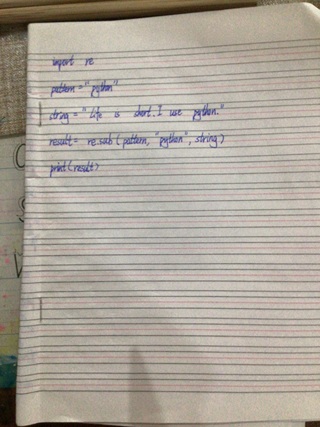 import re
pattern = "python"
string = "Life is short. I use python."
result = re.sub(pattern, "python", string)
print(result)